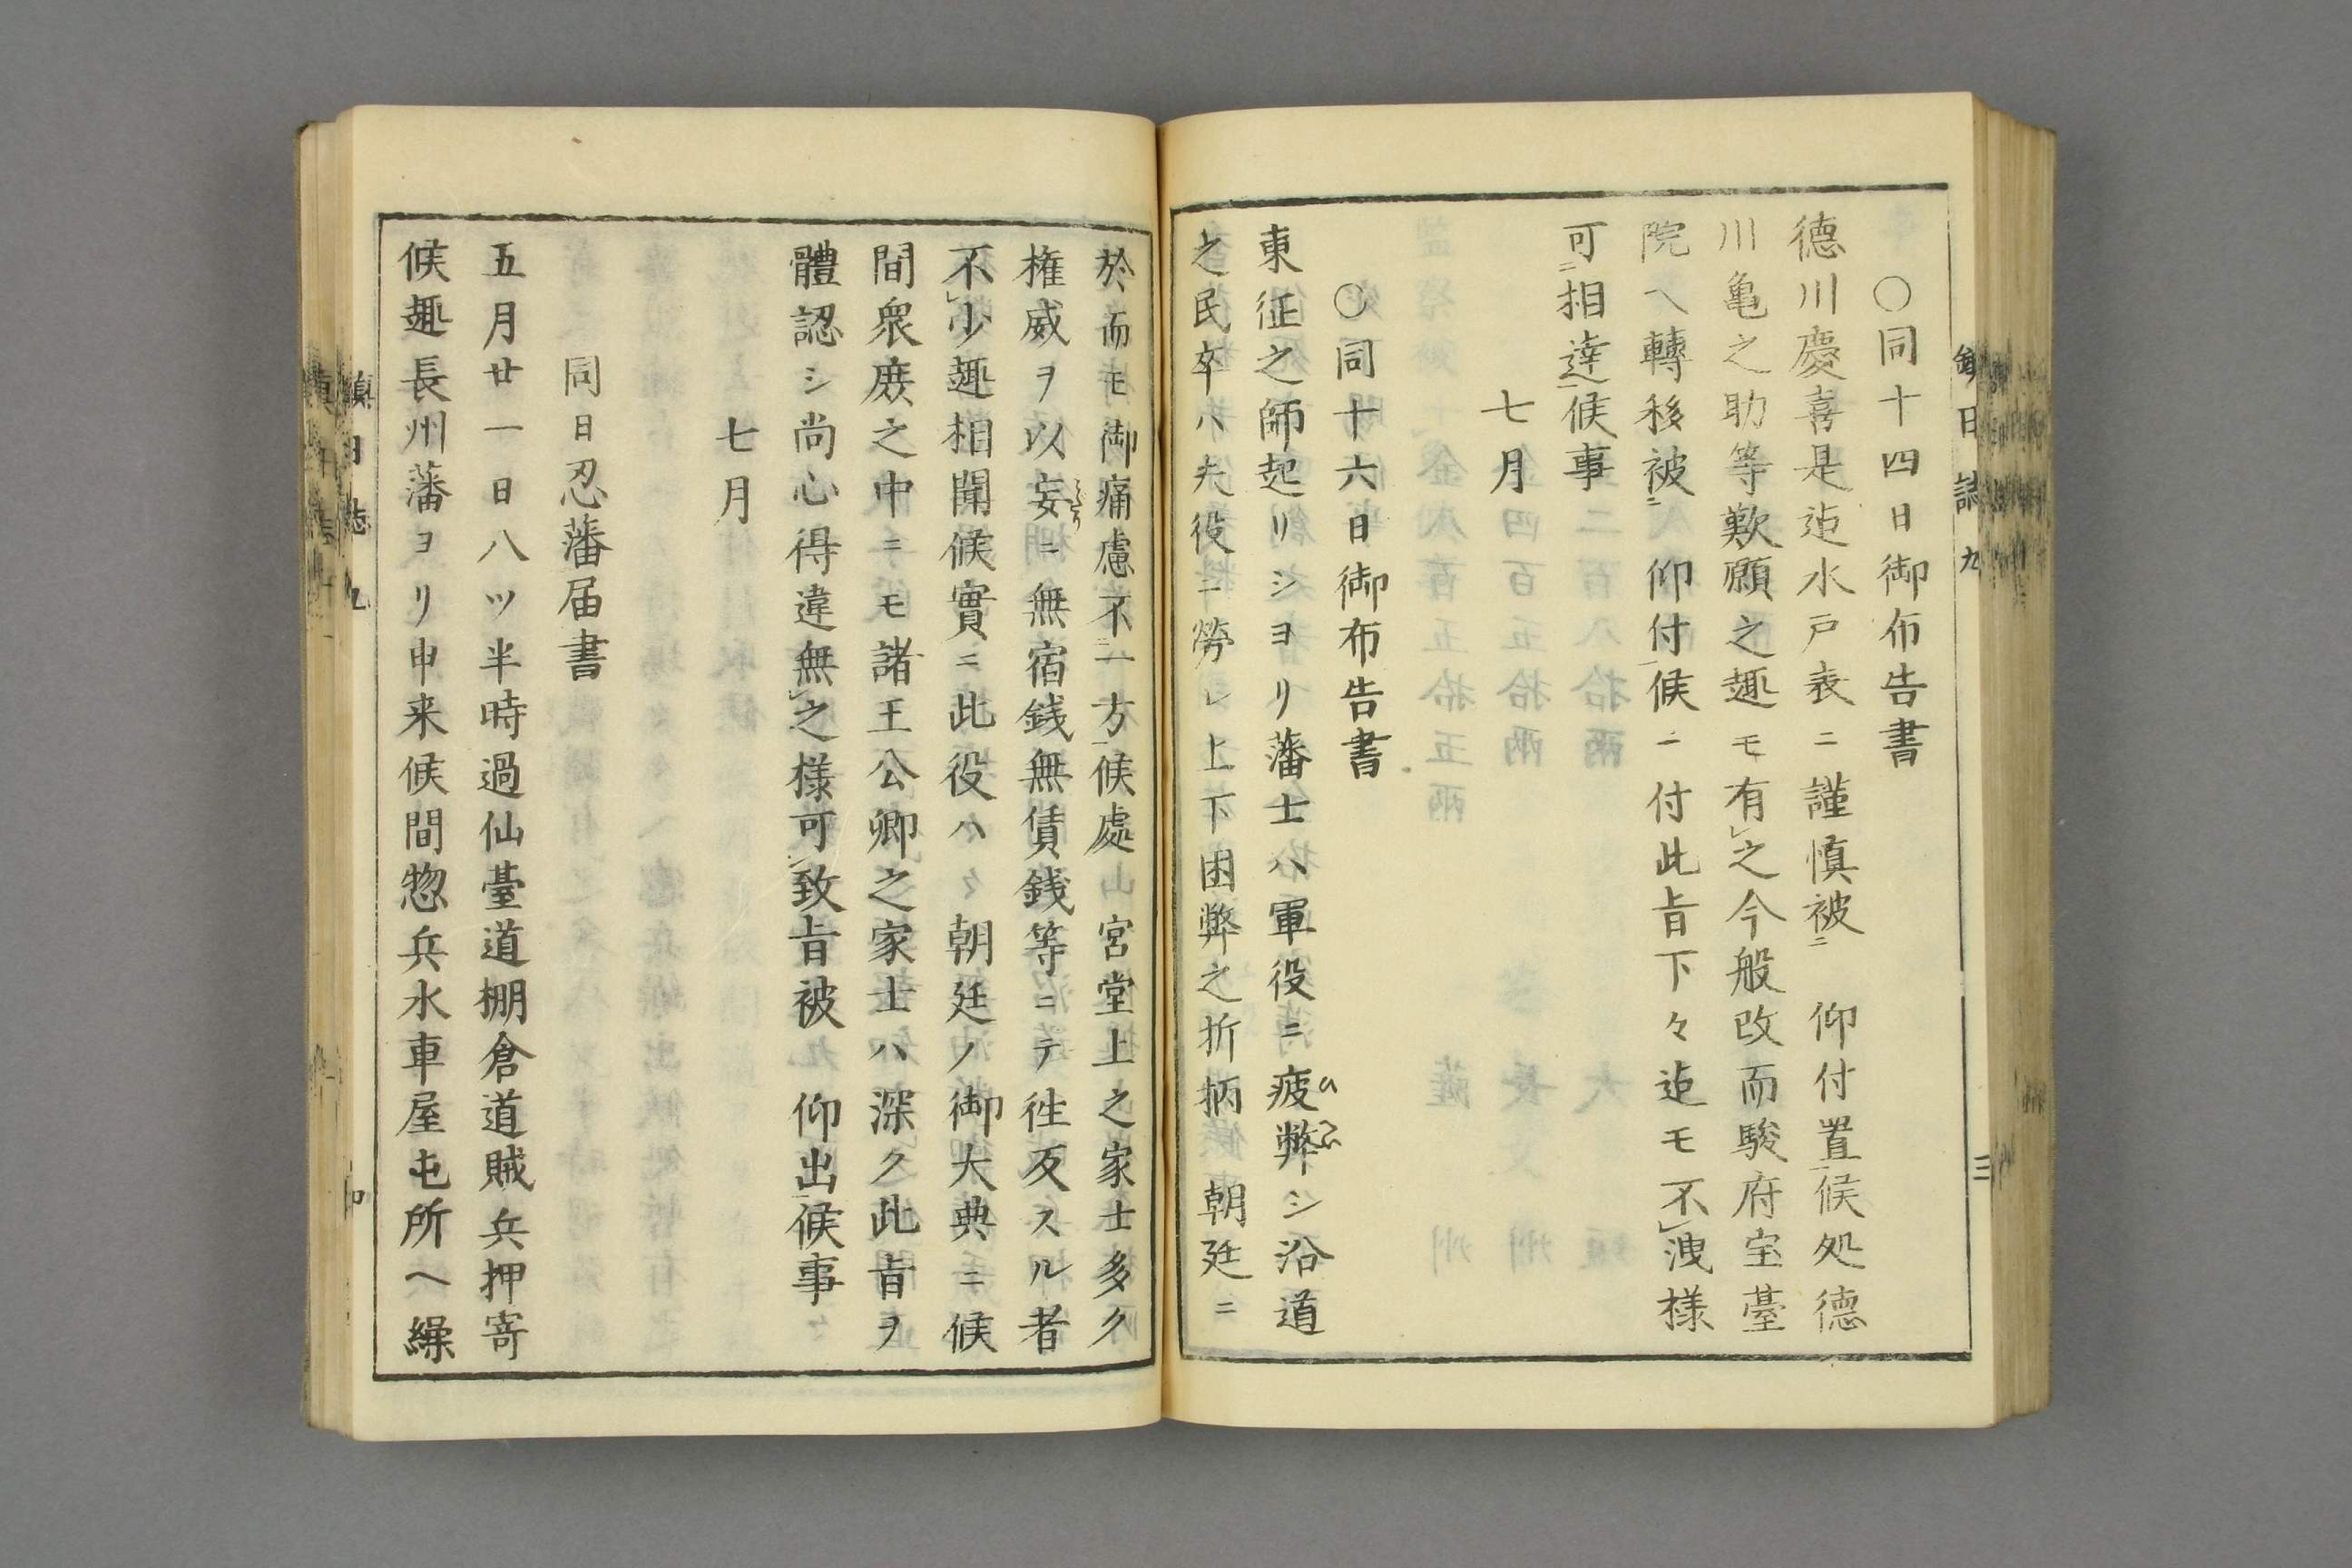 〇同十四日御布告書
德川慶喜是迠水戸表ニ謹愼被ニ 仰付置一候処德
川亀之助等歎願之趣モ有レ之今般改而駿府宝臺
院ヘ轉移被ニ 仰付一候ニ付此㫖下々迠モ不レ洩様
可ニ相達一候事
七月
〇同十六日御布告書
東征之師起リシヨリ藩士ハ軍役ニ疲弊シ沿道
之民卒ハ夫役ニ勞レ上下困弊之折柄 朝廷ニ
於而モ御痛慮不ニ一方一候處山宮堂上之家士多ク
権威ヲ以妄ニ無宿銭無賃銭等ニテ徃反スル者
不レ少趣相聞候實ニ此役ハ々朝廷ノ御大典ニ候
間衆庻之中ニモ諸王公卿之家士ハ深ク此㫖ヲ
體認シ尚心得違無レ之様可レ致㫖被 仰出一候事
七月
同日忍藩届書
五月廿一日八ツ半時過仙臺道棚倉道賊兵押寄
候趣長州藩ヨリ申来候間惣兵水車屋屯所ヘ繰
日誌九
三
鎮日誌九
四